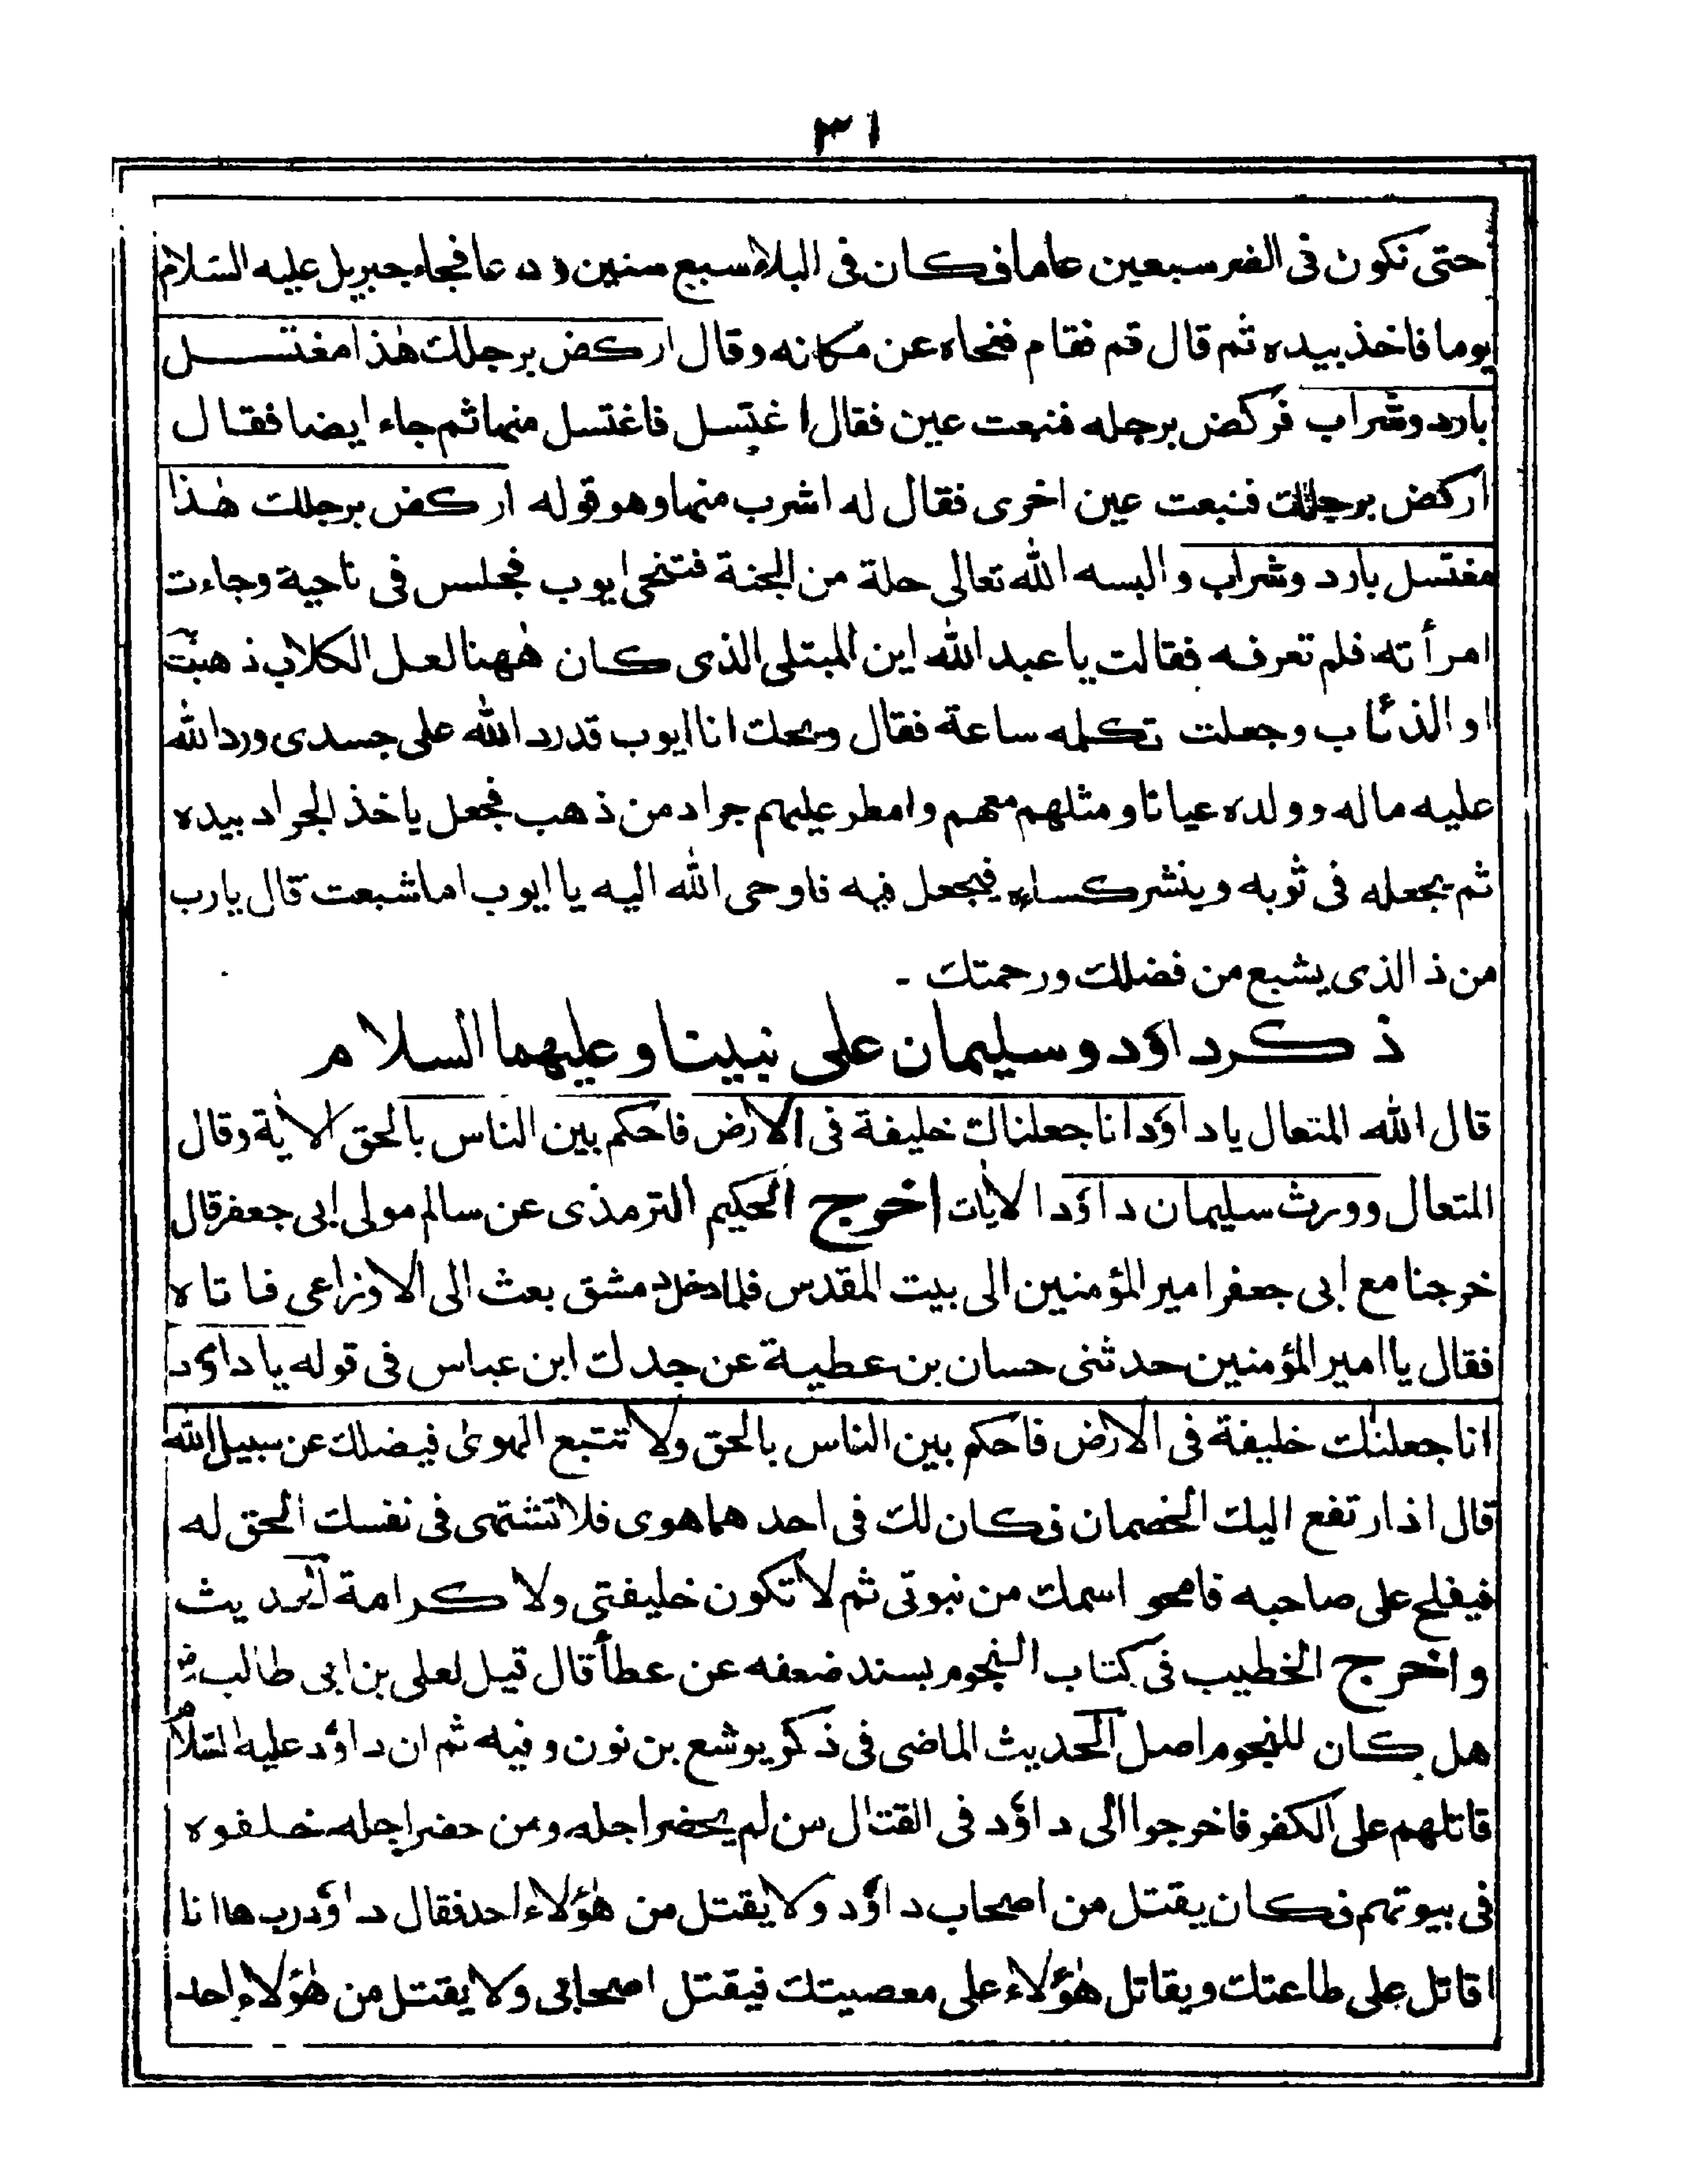 ٣١
حتى نكون فى الضر سبعين عاما فكان فى البلاء سبع سنين ودعا فجاء جبريل عليه السلام
يوما فاخذ بيده ثم قال قم فقام فنحاه عن مكانه وقال اركض برجلك هٰذا مغتسل
بارد وشراب فركض برجله فنبعت عين فقال اغتسل فاغتسل منها ثم جاء ايضا فقال
اركض برجلك فنبعت عين اخرى فقال له اشرب منها وهو قوله اركض برجلك هٰذا
مغتسل بارد وشراب والبسه الله تعالى حلة من الجنة فتنحى ايوب فجلس فى ناحية وجاءت
امرأته فلم تعرفه فقالت يا عبد الله اين المبتلى الذى كان هٰهنا لعل الكلاب ذهبت
او الذئاب وجعلت تكلمه ساعة فقال ويحك انا ايوب قد رد الله على جسدى ورد الله
عليه ماله وولده عيانا ومثلهم معهم وامطر عليهم جراد من ذهب فجعل ياخذ الجراد بيده
ثم يجعله فى ثوبه وينشر كساءه فيجعل فيه فاوحى الله اليه يا ايوب اما شبعت قال يارب
من ذا الذى يشبع من فضلك ورحمتك -
ذكر داؤد وسليمان على نبينا وعليهما السلام
قال الله المتعال يا داؤد انا جعلناك خليفة فى الارض فاحكم بين الناس بالحق الاٰية وقال
المتعال وورث سليمان داؤد الاٰيات اخرج الحكيم الترمذى عن سالم مولى ابى جعفر قال
خرجنا مع ابى جعفر امير المؤمنين الى بيت المقدس فلما دخل دمشق بعث الى الاوزاعى فاتاه
فقال يا امير المؤمنين حدثنى حسان بن عطية عن جدك ابن عباس فى قوله يا داؤد
انا جعلنٰك خليفة فى الارض فاحكم بين الناس بالحق ولا تتبع الهوىٰ فيضلك عن سبيل الله
قال اذا ارتفع اليك الخصمان فكان لك فى احدهما هوى فلا تشتهى فى نفسك الحق له
فيفلح على صاحبه فامحو اسمك من نبوتى ثم لا تكون خليفتى ولا كرامة
واخرج الخطيب فى كتاب النجوم بسند ضعفه عن عطأ قال قيل لعلى بن ابى طالب رض
هل كان للنجوم اصل الحديث الماضى فى ذكر يوشع بن نون وفيه ثم ان داؤد عليه السلام
قاتلهم على الكفر فاخرجوا الى داؤد فى القتال من لم يحضر اجله ومن حضر اجله خلفوه
فى بيوتهم فكان يقتل من اصحاب داؤد ولا يقتل من هٰؤلاء احد فقال داؤد رب ها انا
اقاتل على طاعتك ويقاتل هٰؤلاء على معصيتك فيقتل اصحابى ولا يقتل من هٰؤلاء احد